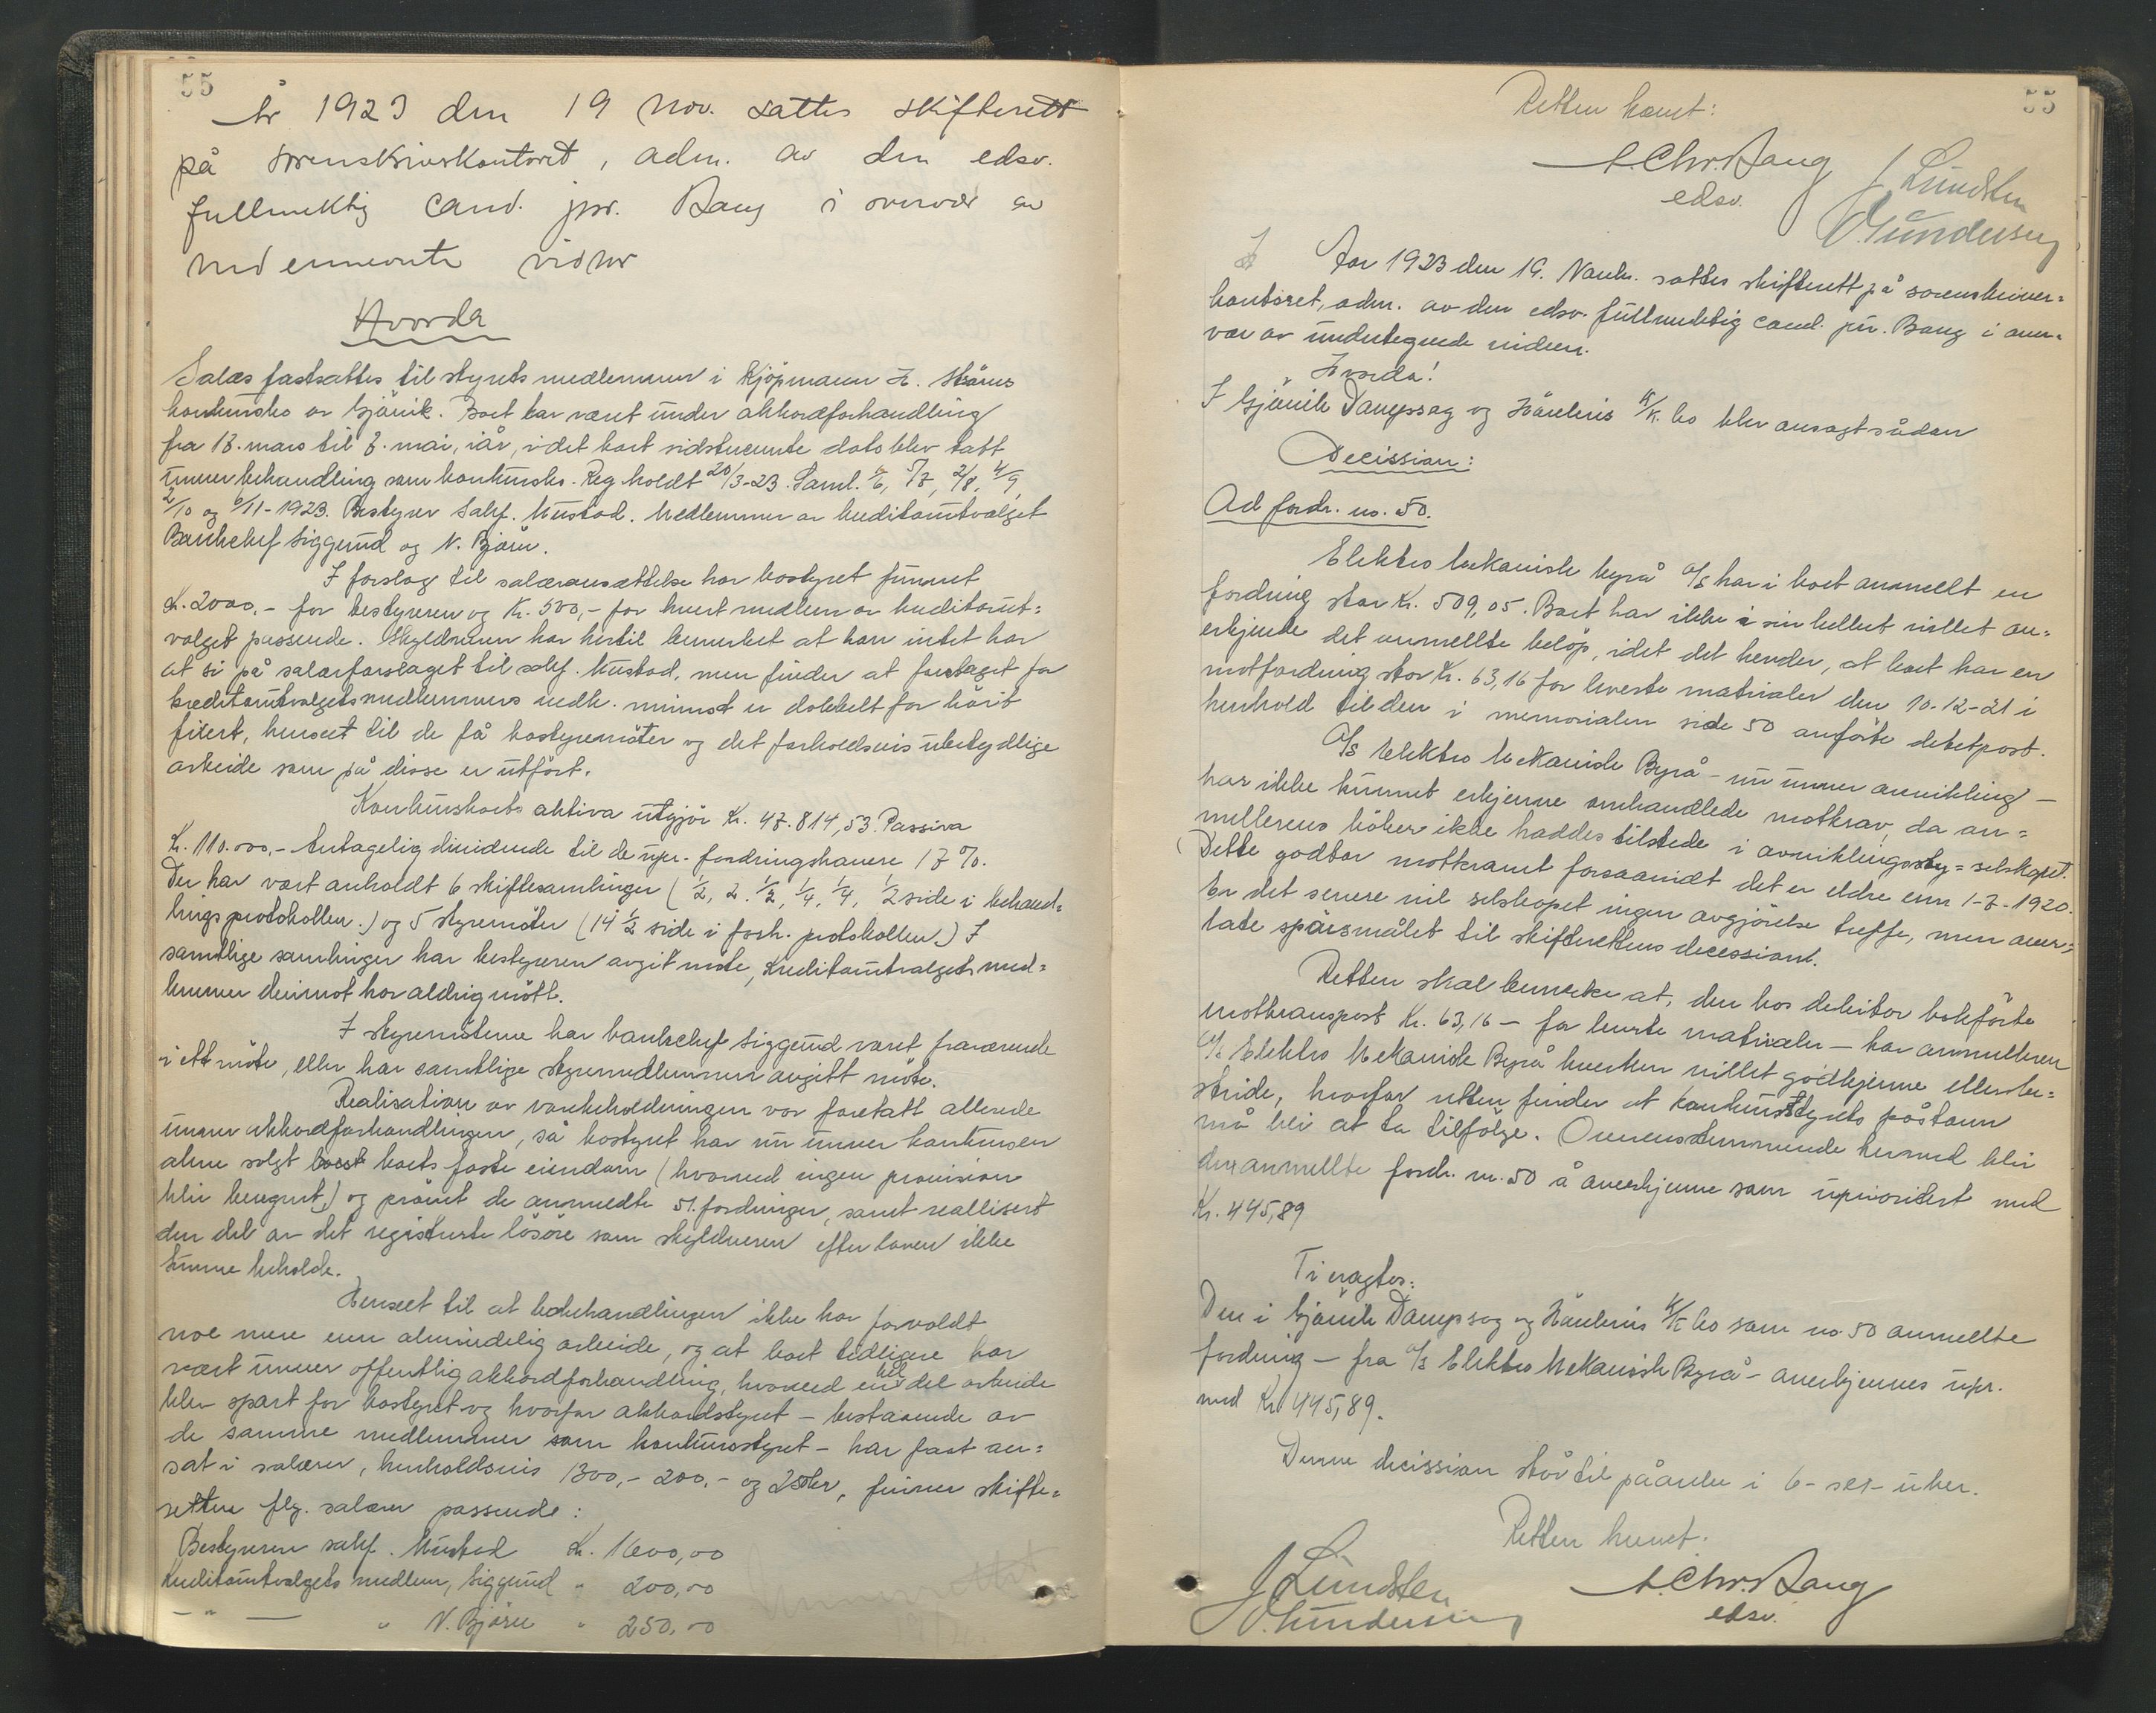 55
År 1923 den 19 Nov. sattes skifterett
på sorenskriverkontoret, adm. av den edsv.
fullmektig cand. jur. Bang i overvær av
nedennevnte vidner
Hvorda
Salær fastsattes til styrets medlemmer i kjøpmann H.
konkursbo av Gjövik. Boet har været under akkordforhandling
fra 13. mars til 7. mai, iår, idet boet sidstnevnte dato blev tatt
unner behandling som konkursbo. Reg. holdt 20/3-23. Saml. 6/6, 5/7, 2/8, 4/9,
2/10 og 6/11-1923. Bestyrer Sakf. Mustad. Medlemmer av kreditorutvalget
Bankchef Siggerud og N. Bjørn.
I forslag til salæransættelse har bostyret funnet
Kr. 2000,- for bestyreren og Kr. 500,- for hvert medlem av kreditorut=
valget passende. Skyldneren har hertil bemerket at han intet har
at si på salærforslaget til sakf. Mustad, men finder at forslaget for
kreditorutvalgets medlemmers vedk. minst er dobbelt for höit
, henseet til de få bostyremöter og det forholdsvis ubetydlige
arbeide som på disse er utfört.
Konkursboets aktiva utgjör Kr. 47.814,53. Passiva
Kr. 110.000,- Antagelig dividende til de upr. fordringshavere 17%.
Der har vært avholdt 6 skiftesamlinger (1/2, 2. 1/2, 1/4, 1/4, 1/2 side i behand=
lingsprotokollen.) og 5 styremöter (14 1/2 side i forh. protokollen.) I
samtlige samlinger har bestyreren avgit möte, kreditorutvalgets med=
lemmer derimot har aldrig mött.
I styremöterne har bankchef Siggerud været fraværende
i ett möte, ellers har samtlige styremedlemmer avgitt möte.
Realisation av varebeholdningen var foretatt allerede
unner akkordforhandlingen, så bostyret har nu unner konkursen
alene solgt boets faste eiendom (hvorved ingen provision
blir beregnet) og prövet de anmeldte 51. fordringer, samt reallisert
den del av det registrerte lösöre som skyldneren efter loven ikke
kunne beholde.
Henseet til at bobehandlingen ikke har forvoldt
noe mere enn almindelig arbeide, og at boet tidligere har
vært unner offentlig akkordforhandling, hvorved en hel del arbeide
blev spart for bostyret og hvorfor akkordstyret - bestaaende av
de samme medlemmer som konkursstyret - har faat an=
sat i salærer, henholdsvis 1300,- 200,- og 250kr, finner skifte=
rettene flg. salærer passende:
Bestyreren sakf. Mustad Kr. 1600,00
Kreditorutvalgets medlem, Siggerud " 200,00
- " - " N. Bjørn " 250,00
55
Retten hævet:
A. Chr. Bang
edsv.
J Lundsten
O. Gundersen
Aar 1923 den 19. Novbr. sattes skifterett på sorenskriver=
kontoret, adm. av den edsv. fullmektig cand. jur. Bang i over=
vær av undertegnede vidner.
Hvorda!
I Gjövik Dampsag og Hövleris A/K. bo blev avsagt sådan
Decission:
Ad fordr. no. 50.
Elektro Mekanisk byrå A/S har i boet anmellt en
fordring stor Kr. 509,05. Boet har ikke i sin helhet villet an=
erkjende det anmellte belöp, idet det hevder, at boet har en
motfordring stor Kr. 63,16 for leverte matrialer den 10-12-21 i
henhold til den i memorialen side 50 anförte debetpost.
A/S Elektro Mekanisk Byrå - nu unner avvikling -
har ikke kunnet erkjenne omhandlede motkrav, da an=
mellerens böker ikke haddes tilstede i avviklingsselskapet.
Dette godtar motkravet forsaavidt det er eldre enn 1-7-1920.
Er det senere vil selskapet ingen avgjörelse treffe, men over=
late spörsmålet til skifterettens decession.
Retten skal bemerke at, den hos debitor bokförte
motkravspost Kr. 63,16 - for leverte matrialer - har anmelleren
A/S Elektro Mekanisk Byrå hverken villet godkjenne eller be=
stride, hvorfor retten finder at konkursstyrets påstann
må bli at ta tilfölge. Overensstemmende hermed blir
den anmellte fordr. nr. 50 å anerkjenne som uprioritert med
Kr. 445,89
Ti eragtes:
Den i Gjövik Dampsag og Hövleris A/K bo som no. 50 anmellte
fordring - fra A/S Elektro Mekanisk Byrå - anerkjennes upr.
med Kr. 445,89.
Denne decission står til påanke i 6- sex- uker.
Retten hevet.
J Lundsten
O. Gundersen
A. Chr. Bang
edsv.